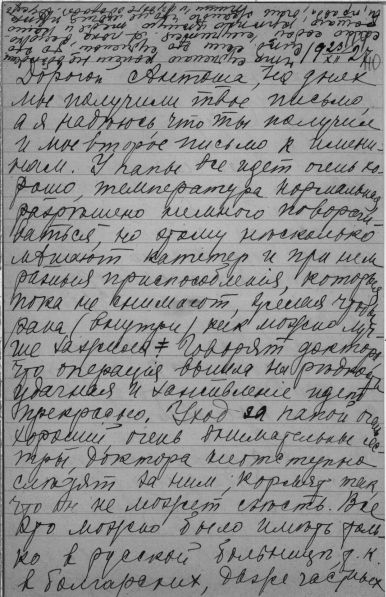 1925
Дорогой Антоша, на днях
мы получили твое письмо,
а я надеюсь что ты получил
и мое второе письмо к имени-
нам. У папы все идет очень хо-
рошо, температура нормальная
разрешено немного поворачи-
ваться, но этому несколько
мешают катетер и при нем
разныя приспособления, которыя
пока не снимают, желая чтобы
рана (внутри) как можно луч
ше зажила. Говорят доктора
что операция вышла на редкость
удачная и заживление идет
прекрасно. Уход за папой очень
хороший очень внимательные сес-
тры, доктора неотступно
следят за ним, кормят так
что он не может съесть. Все
это можно было иметь толь-
ко в русской больнице т.к.
в болгарских, даже частных